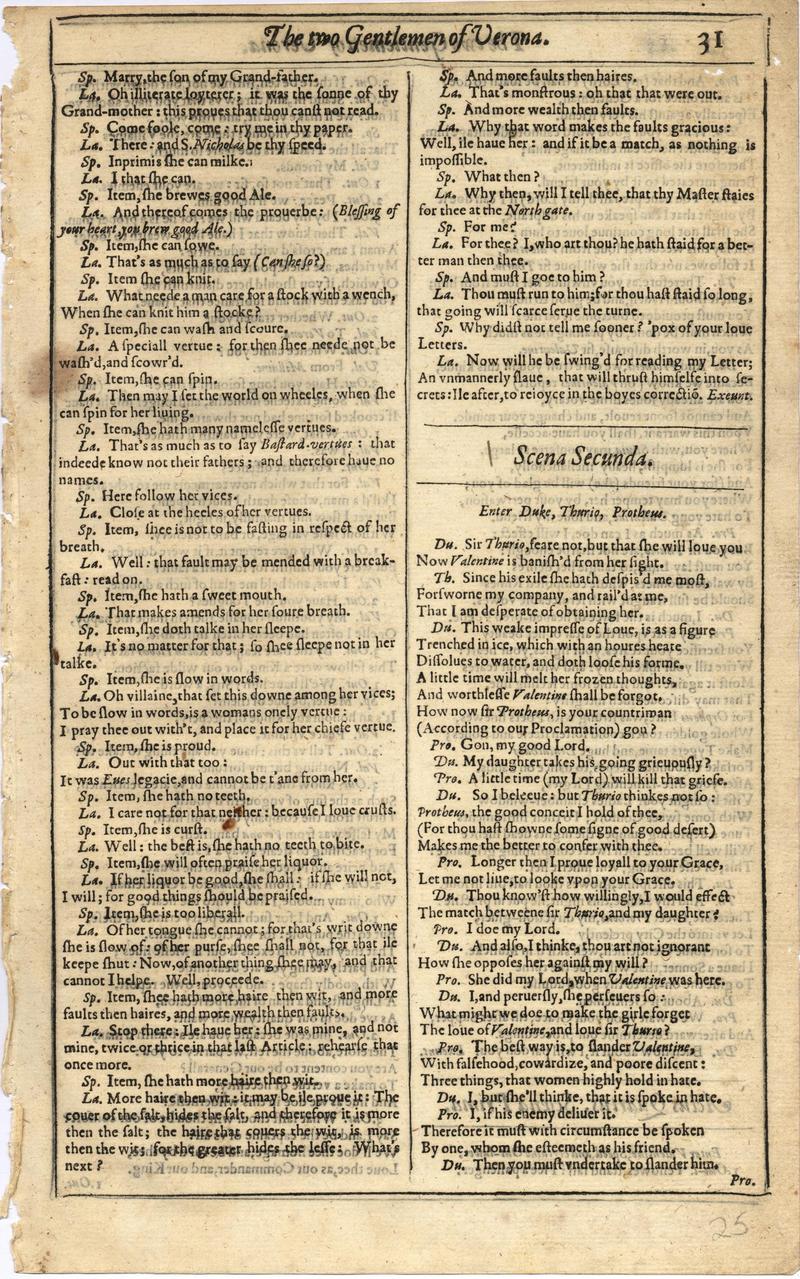 The two Gentlemen of Verona.
31
Sp. Marry, the ſon of my Grand-father.
La. Oh illiterate loyterer; it was the ſonne of thy
Grand-mother: this proues that thou canſt not read.
Sp. Come foole, come: try me in thy paper.
La. There: and S. Nicholas be thy ſpeed.
Sp. Inprimis ſhe can milke.
La. I that ſhe can.
Sp. Item, ſhe brewes good Ale.
La. And thereof comes the prouerbe: (Bleſſing of
your heart, you brew good Ale.)
Sp. Item, ſhe can ſowe.
La. That's as much as to ſay (Can ſhe ſo?)
Sp. Item ſhe can knit.
La. What neede a man care for a ſtock with a wench,
When ſhe can knit him a ſtocke?
Sp. Item, ſhe can waſh and ſcoure.
La. A ſpeciall vertue: for then ſhee neede not be
waſh'd, and ſcowr'd.
Sp. Item, ſhe can ſpin.
La. Then may I ſet the world on wheeles, when ſhe
can ſpin for her liuing.
Sp. Item, ſhe hath many nameleſſe vertues.
La. That's as much as to ſay Baſtard-vertues: that
indeede know not their fathers; and therefore haue no
names.
Sp. Here follow her vices.
La. Cloſe at the heeles of her vertues.
Sp. Item, ſhee is not to be faſting in reſpect of her
breath.
La. Well: that fault may be mended with a break-
faſt: read on.
Sp. Item, ſhe hath a ſweet mouth.
La. That makes amends for her ſoure breath.
Sp. Item, ſhe doth talke in her ſleepe.
La. It's no matter for that; ſo ſhee ſleepe not in her
talke.
Sp. Item, ſhe is ſlow in words.
La. Oh villaine, that ſet this downe among her vices;
To be ſlow in words, is a womans onely vertue:
I pray thee out with't, and place it for her chiefe vertue.
Sp. Item, ſhe is proud.
La. Out with that too:
It was Eues legacie, and cannot be t'ane from her.
Sp. Item, ſhe hath no teeth.
La. I care not for that neither: becauſe I loue cruſts.
Sp. Item, ſhe is curſt.
La. Well: the beſt is, ſhe hath no teeth to bite.
Sp. Item, ſhe will often praiſe her liquor.
La. If her liquor be good, ſhe ſhall: if ſhe will not,
I will; for good things ſhould be praiſed.
Sp. Item, ſhe is too liberall.
La. Of her tongue ſhe cannot; for that's writ downe
ſhe is ſlow of: of her purſe, ſhee ſhall not, for that ile
keepe ſhut: Now, of another thing ſhee may, and that
cannot I helpe. Well, proceede.
Sp. Item, ſhee hath more haire then wit, and more
faults then haires, and more wealth then faults.
La. Stop there: Ile haue her: ſhe was mine, and not
mine, twice or thrice in that laſt Article: rehearſe that
once more.
Sp. Item, ſhe hath more haire then wit.
La. More haire then wit: it may be ile proue it: The
couer of the ſalt, hides the ſalt, and therefore it is more
then the ſalt; the haire that couers the wit, is more
then the wit; for the greater hides the leſſe: What's
next?
Sp. And more faults then haires.
La. That's monſtrous: oh that that were out.
Sp. And more wealth then faults.
La. Why that word makes the faults gracious:
Well, ile haue her: and if it be a match, as nothing is
impoſſible.
Sp. What then?
La. Why then, will I tell thee, that thy Maſter ſtaies
for thee at the North gate.
Sp. For me?
La. For thee? I, who art thou? he hath ſtaid for a bet-
ter man then thee.
Sp. And muſt I goe to him?
La. Thou muſt run to him; for thou haſt ſtaid ſo long,
that going will ſcarce ſerue the turne.
Sp. Why didſt not tell me ſooner? 'pox of your loue
Letters.
La. Now will he be ſwing'd for reading my Letter;
An vnmannerly ſlaue, that will thruſt himſelfe into ſe-
crets: Ile after, to reioyce in the boyes correctiō. Exeunt.
Scena Secunda.
Enter Duke, Thurio, Protheus.
Du. Sir Thurio, feare not, but that ſhe will loue you
Now Valentine is baniſh'd from her ſight.
Th. Since his exile ſhe hath deſpis'd me moſt,
Forſworne my company, and rail'd at me,
That I am deſperate of obtaining her.
Du. This weake impreſſe of Loue, is as a figure
Trenched in ice, which with an houres heate
Diſſolues to water, and doth looſe his forme.
A little time will melt her frozen thoughts,
And worthleſſe Valentine ſhall be forgot.
How now ſir Protheus, is your countriman
(According to our Proclamation) gon?
Pro. Gon, my good Lord.
Du. My daughter takes his going grieuouſly?
Pro. A little time (my Lord) will kill that griefe.
Du. So I beleeue: but Thurio thinkes not ſo:
Protheus, the good conceit I hold of thee,
(For thou haſt ſhowne ſome ſigne of good deſert)
Makes me the better to confer with thee.
Pro. Longer then I proue loyall to your Grace,
Let me not liue, to looke vpon your Grace.
Du. Thou know'ſt how willingly, I would effect
The match betweene ſir Thurio, and my daughter?
Pro. I doe my Lord.
Du. And alſo, I thinke, thou art not ignorant
How ſhe oppoſes her againſt my will?
Pro. She did my Lord, when Valentine was here.
Du. I, and peruerſly, ſhe perſeuers ſo:
What might we doe to make the girle forget
The loue of Valentine, and loue ſir Thurio?
Pro. The beſt way is, to ſlander Valentine,
With falſehood, cowardize, and poore diſcent:
Three things, that women highly hold in hate.
Du. I, but ſhe'll thinke, that it is ſpoke in hate.
Pro. I, if his enemy deliuer it.
Therefore it muſt with circumſtance be ſpoken
By one, whom ſhe eſteemeth as his friend.
Du. Then you muſt vndertake to ſlander him.
Pro.
25